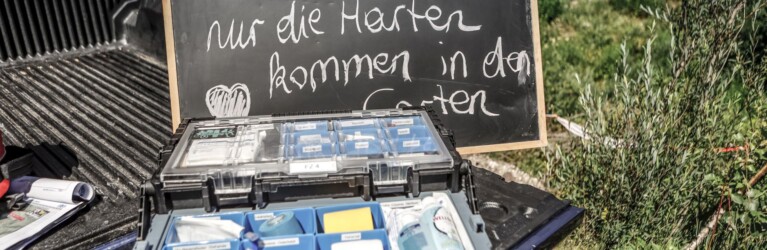 nur die Harten
kommen in den
Garten